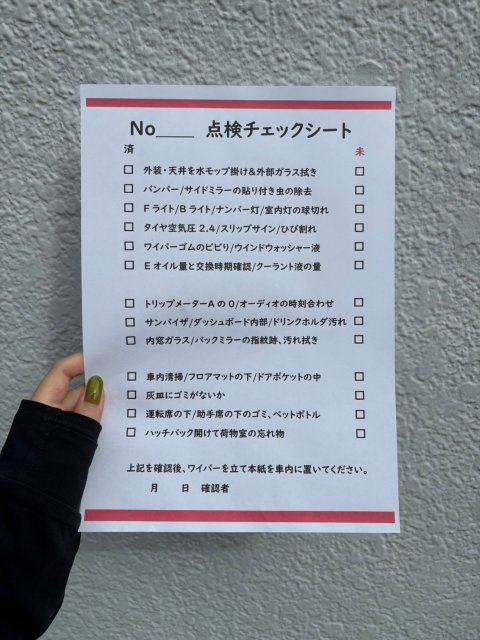 No____ 点検チェックシート
済 未
□ 外装・天井を水モップ掛け&外部ガラス拭き □
□ バンパー/サイドミラーの貼り付き虫の除去 □
□ Fライト/Bライト/ナンバー灯/室内灯の球切れ □
□ タイヤ空気圧2.4/スリップサイン/ひび割れ □
□ ワイパーゴムのビビリ/ウインドウォッシャー液 □
□ Eオイル量と交換時期確認/クーラント液の量 □
□ トリップメーターAの0/オーディオの時刻合わせ □
□ サンバイザ/ダッシュボード内部/ドリンクホルダ汚れ □
□ 内窓ガラス/バックミラーの指紋跡、汚れ拭き □
□ 車内清掃/フロアマットの下/ドアポケットの中 □
□ 灰皿にゴミがないか □
□ 運転席の下/助手席の下のゴミ、ペットボトル □
□ ハッチバック開けて荷物室の忘れ物 □
上記を確認後、ワイパーを立て本紙を車内に置いてください。
月 日 確認者